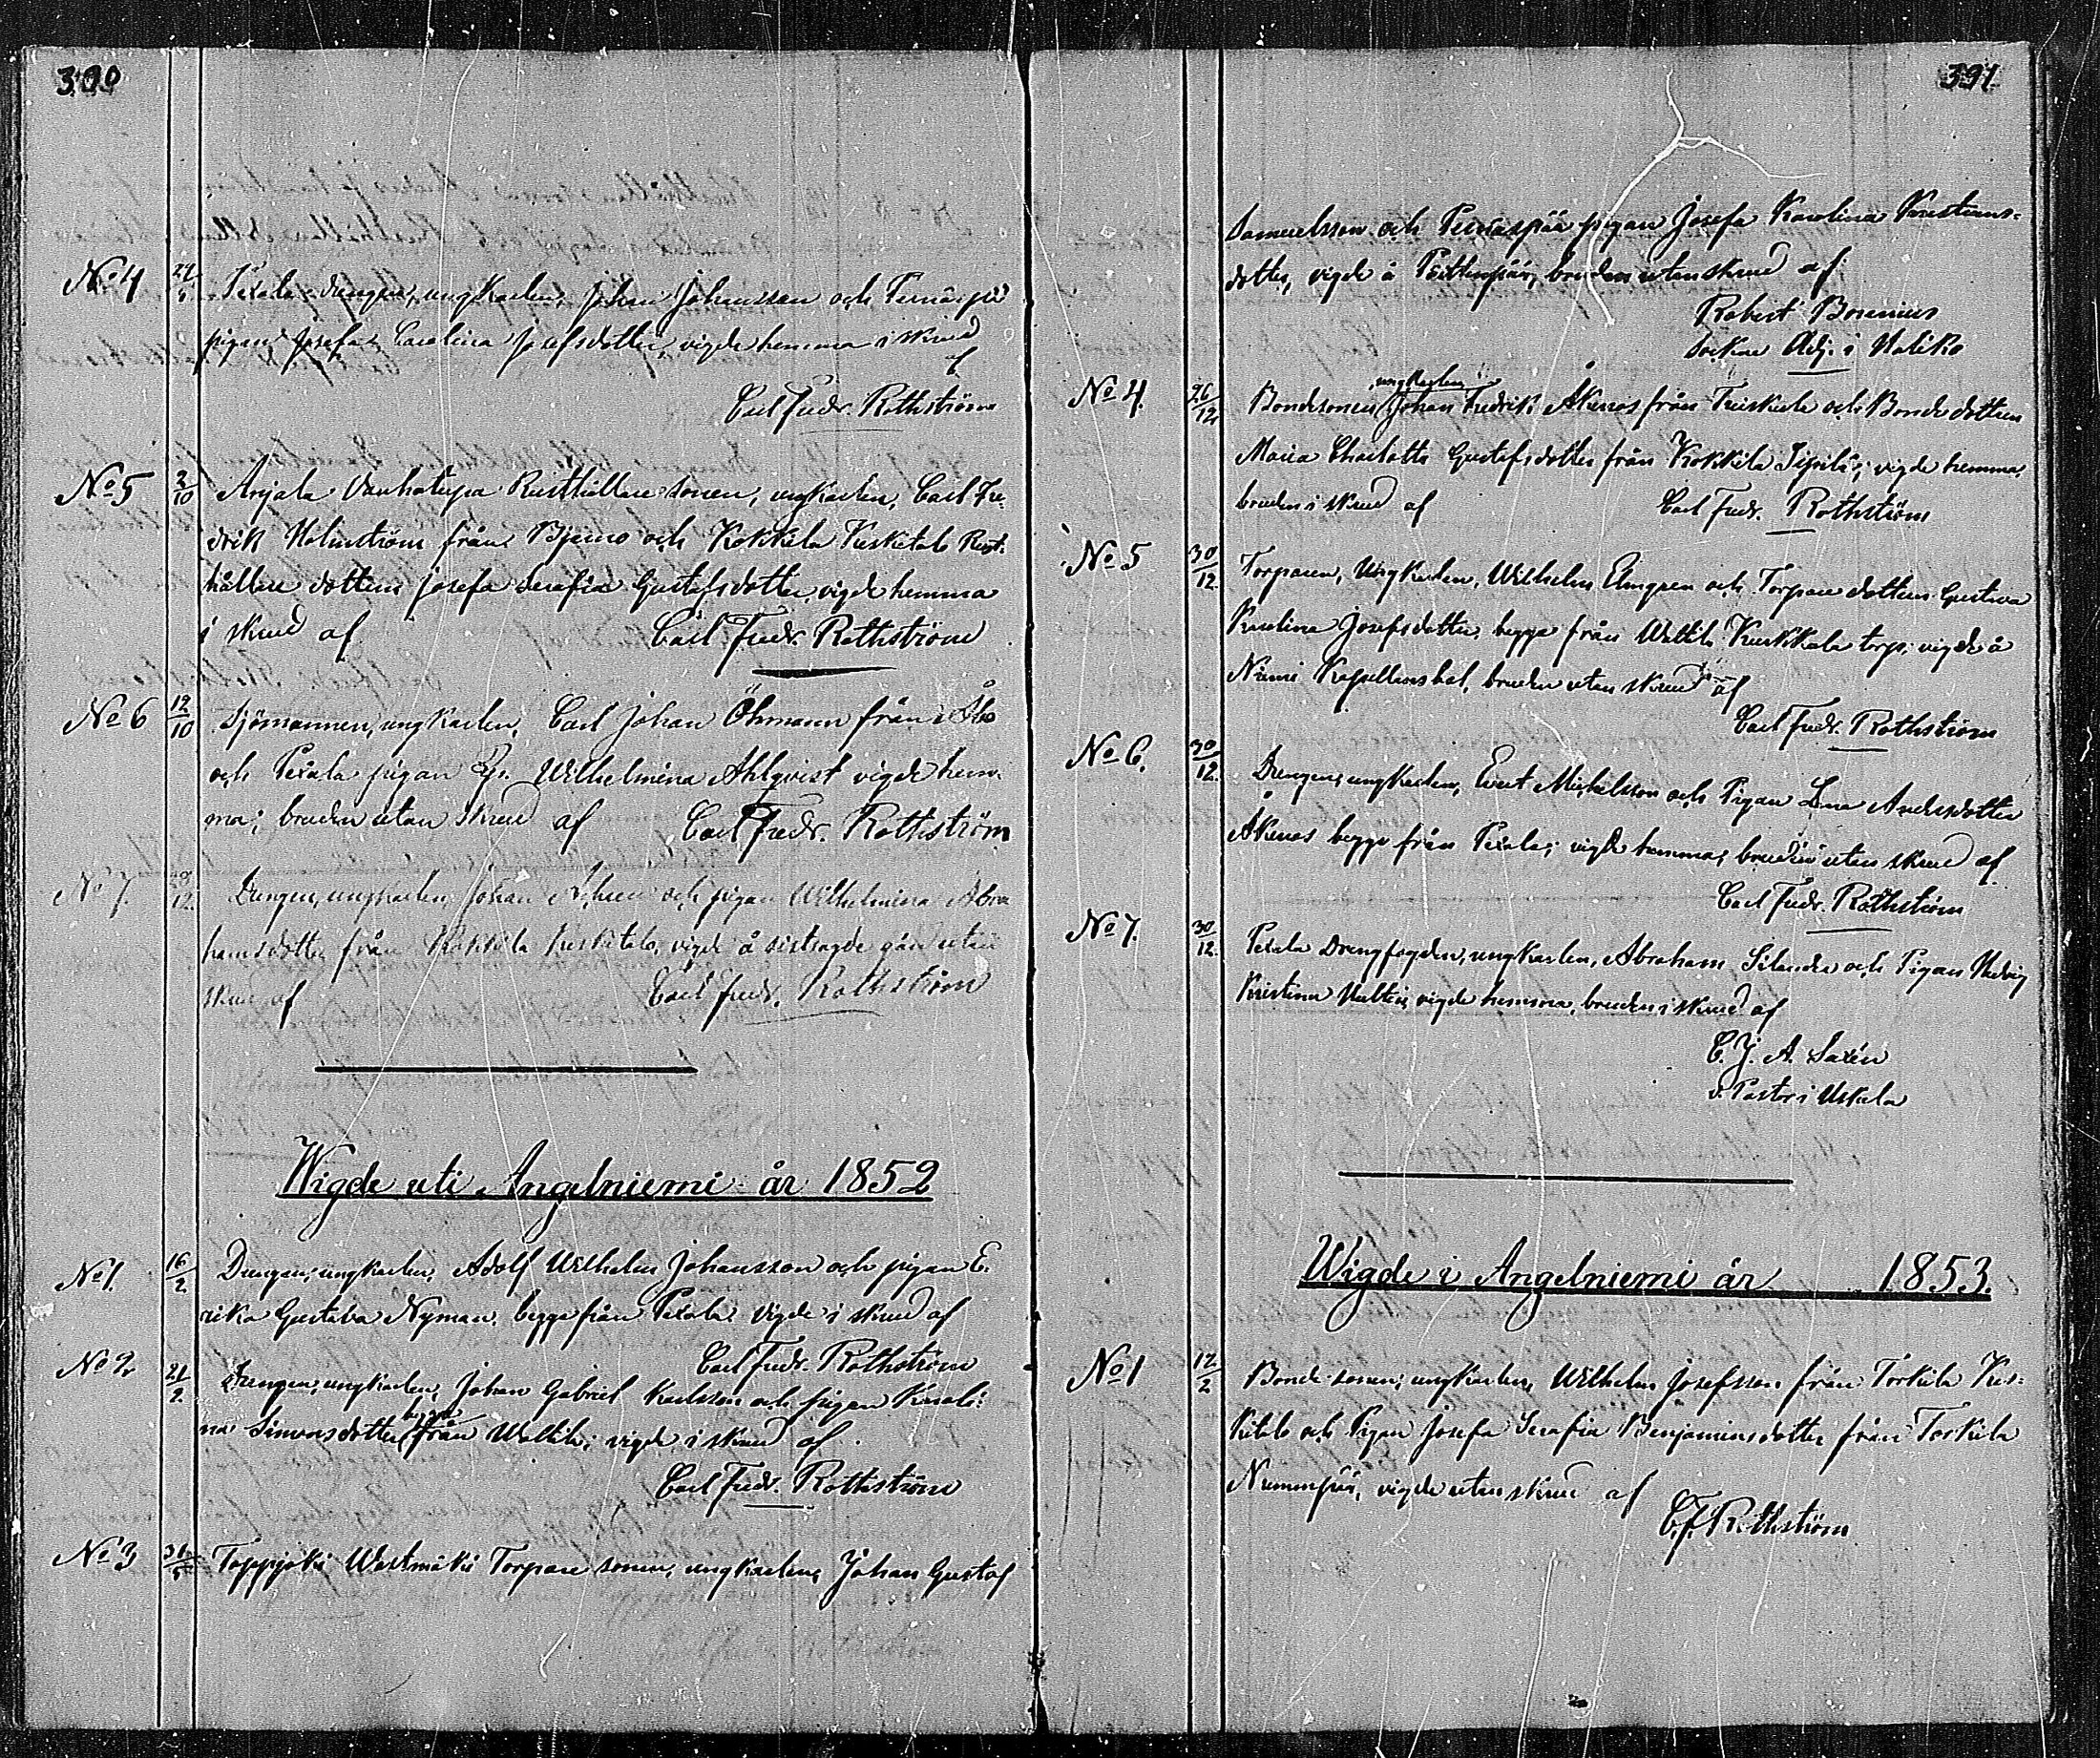 390
No 4 24/ Pexala drengen, ungkarlen, Johan Johansson och Pernäspää
pigan Josefa Carolina Josefsdotter, vigde hemma i skrud
af
Carl Fredr. Rothström
No 5 2/10 Anjala Vanhatupa Rusthållare sonen, ungkarlen, Carl Fre-
drik Holmström från Bjerno och Kokkila Keskitalo Rust-
hållare dottern Josefa Serafia Gustafsdotter, vigde hemma
i skrud af Carl Fredr. Rothström
No 6 12/10 Sjömannen, ungkarlen, Carl Johan Öhmann från Åbo
och Pexala pigan Wilhelmina Ahlqvist vigde hem-
ma; bruden utan skrud af Carl Fredr. Rothström
No 7. 28/12. Drengen, ungkarlen, Johan och pigan Wilhelmina Abra
hamsdotter från Kokkila Keskitalo, vigde å sistsagde gård utan
skrud af Carl Fredr. Rothström
Wigde uti Angelniemi år 1852
No 1. 16/2 Drengen, ungkarlen, Adolf Wilhelm Johansson och pigan E-
rika Gustava Nyman, begge från Pexala vigde i skrud af
Carl Fredr. Rothström
No 2 21/2 Drengen, ungkarlen, Johan Gabriel Karlsson och pigan Karoli-
na Simonsdotter begge från Walttila; vigde i skrud af
Carl Fredr. Rothström
No 3 31/ Toppjoki Wastmäki Torpare sonen, ungkarlen, Johan Gustaf
391
Samuelsson och Pernäspää pigan Josefa Karolina Kristians-
dotter, vigde å bruden utan skrud af
Robert Borenius
Sockne Adj. i Haliko
No 4. 26/12 Bondesonen, ungkarlen Johan Fredrik Åkerros från Truskula och Bonde dottern
Maria Charlotta Gustafsdotter från Kokkila Sipilä; vigde hemma,
bruden i skrud af Carl Fredr. Rothström
No 5 30/12. Torparen, Ungkarlen, Wilhelm Elmgren och Torpare dottern Gustava
Karolina Josefsdotter, begge från Walttila Kurkkala torp; vigde å
Niemi Kapellansbol, bruden utan skrud af
Carl Fredr. Rothström
No 6. 30/12. Drengen, ungkarlen, Evert Michelsson och Pigan Lena Andersdotter
Åkerros begge från Pexala; vigde hemma, bruden utan skrud af
Carl Fredr. Rothström
No 7. 30/12. Pexala Drengfogden, ungkarlen, Abraham Silander och Pigan Hedvig
Kristina vigde hemma, bruden i skrud af
C. J. A. Saxén
v. Pastor i Uskela
Wigde i Angelniemi år 1853.
No 1 12/2 Bonde-sonen, ungkarlen, Wilhelm Josefsson från Torkila Kes-
kitalo och Pigan Josefa Serafia Benjaminsdotter från Torkila
Nummepää, vigde utan skrud af
C. F. Rothström